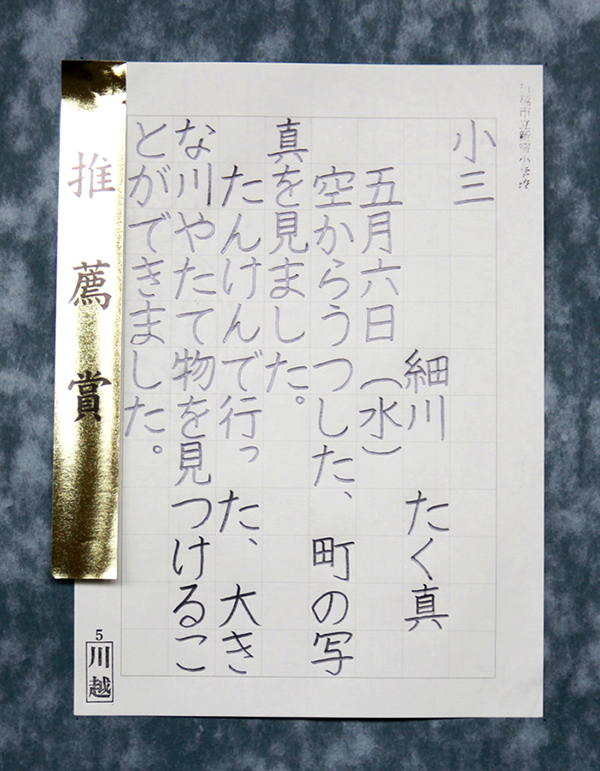 川越市立新宿小学校
小三
細川 たく真
五月六日(水)
空からうつした、町の写
真を見ました。
たんけんで行った、大き
な川やたて物を見つけるこ
とができました。
推薦賞
5
川越